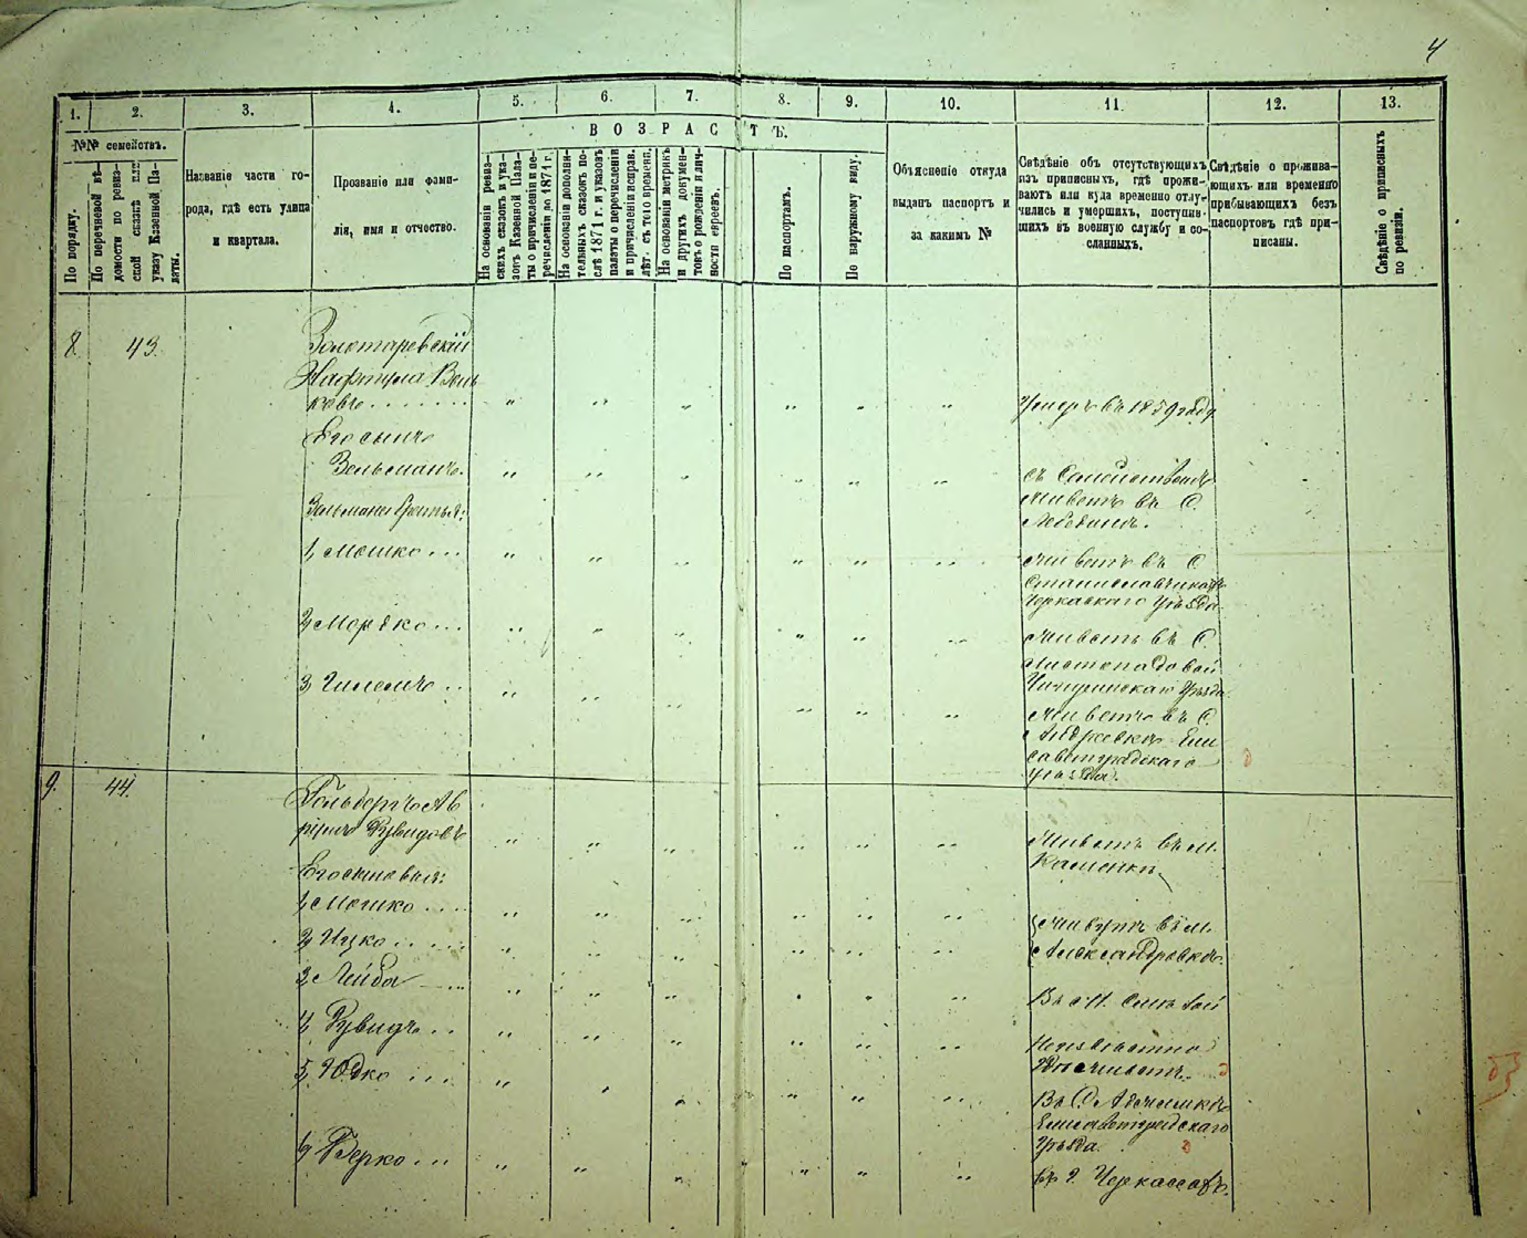 4
1. 2. 3. 4. 5. 6. 7. 8. 9. 10. 11. 12. 13.
№№ семействъ.
По порядку.
По перечневой вѣ-
домости по ревиз-
ской сказкѣ или
указу Казенной Па-
латы.
Названіе части го-
рода, гдѣ есть улица
и квартала.
Прозваніе или фами-
лія, имя и отчество.
ВОЗРАСТЪ.
На основаніи ревиз-
скихъ сказокъ и ука-
зовъ Казенной Пала-
ты о причисленіи и пе-
речисленіи до 1871 г.
На основаніи дополни-
тельныхъ сказокъ по-
слѣ 1871 г. и указовъ
палаты о перечисленіи
и причисленіи исправ.
лѣт. съ того времени.
На основаніи метрикъ
и другихъ докумен-
товъ о рожденіи и лич-
ности евреевъ.
По паспортамъ.
По наружному виду.
Объясненіе откуда
выданъ паспортъ и
за какимъ №
Свѣдѣніе объ отсутствующихъ
изъ приписныхъ, гдѣ прожи-
ваютъ или куда временно отлу-
чились и умершихъ, поступив-
шихъ въ военную службу и со-
сланныхъ.
Свѣдѣніе о прожива-
ющихъ или временно
прибывающихъ безъ
паспортовъ гдѣ при-
писаны.
Свѣдѣніе о приписныхъ
по ревизіи.
8. 43. Золотаревскій
Нафтула Вель
ковъ . . . . . . . " " " " " " Умеръ въ 1859 году
Его сынъ
Зельманъ. " " " " " " съ Семействомъ
живетъ въ С.
Лебединѣ.
Зельмана братья:
1, Мошко . . . " " " " " " живетъ въ С.
Станиславчикѣ
Черкаскаго Уѣзда
2, Мордко . . . " " " " " " живетъ въ С.
Листопадовой
Чигиринскаго Уѣзда
3, Гилемъ . . " " " " " " живетъ въ С.
Андрѣевкѣ Ели
саветградскаго
уѣзда.
9. 44. Гольдбергъ Ав
румъ Рувидовъ " " " " " " Живетъ въ м.
Каменки
Его сыновья:
1, Мошко . . . . " " " " " " живутъ въ м.
2, Ицко . . . . . " " " " " " Александровкѣ.
3, Лейба . . . " " " " " " Въ м. Смѣлой
4, Рувидъ . . " " " " " " Неизвѣстно
гдѣ живетъ.
5, Юдко . . . " " " " " " Въ С.
Елисаветградскаго
Уѣзда.
6, Берко . . . " " " " " " въ г. Черкассахъ.